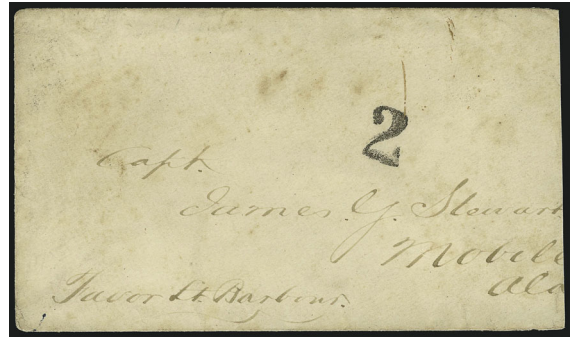 2
Capt.
James. Y. Stewart
Mobile
Ala
Favor Lt. Barbour.